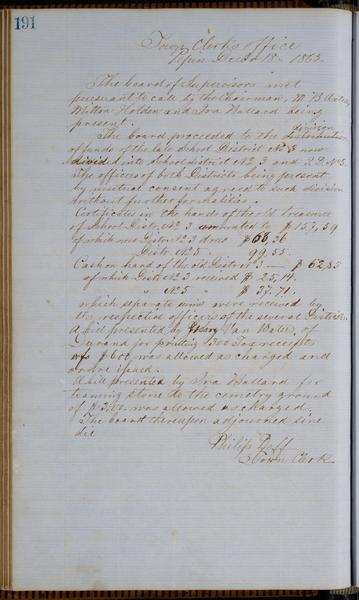 191
Town Clerk's Office
Dec 18th 1863.
The board of Supervisors met
pursuant to call by the Chairman, W B
Milton Holden and Ira Hallard being
present.
division
The board proceeded to the
of funds of the late School District No 3 now
divided into School district No 3 and S.D. No 5.
The officers of both Districts being present
by mutual consent agreed to such division
without further formalities.
Certificates in the hands of the old Treasurer
of School Distr. No 3 amounted to $ 157,59
of which new Distr No 3 draws $ 68,36
Distr. No 5 99,55
Cash on hand of the old Distr No 3 — $ 62,85
of which Distr No 3 received $ 25,14.
" " No 5 " $ 37.71.
which separate sums were received by
the respective officers of the several Districts.
A bill presented by Van Water, of
Durand for printing 1300 Tax receipts
of $6.00 was allowed as charged and
order issued.
A bill presented by Ira Hallard for
teaming stone to the cemetry ground
of $ 3.50 was allowed as charged.
The board thereupon adjourned sine
die
Philip
Town Clerk